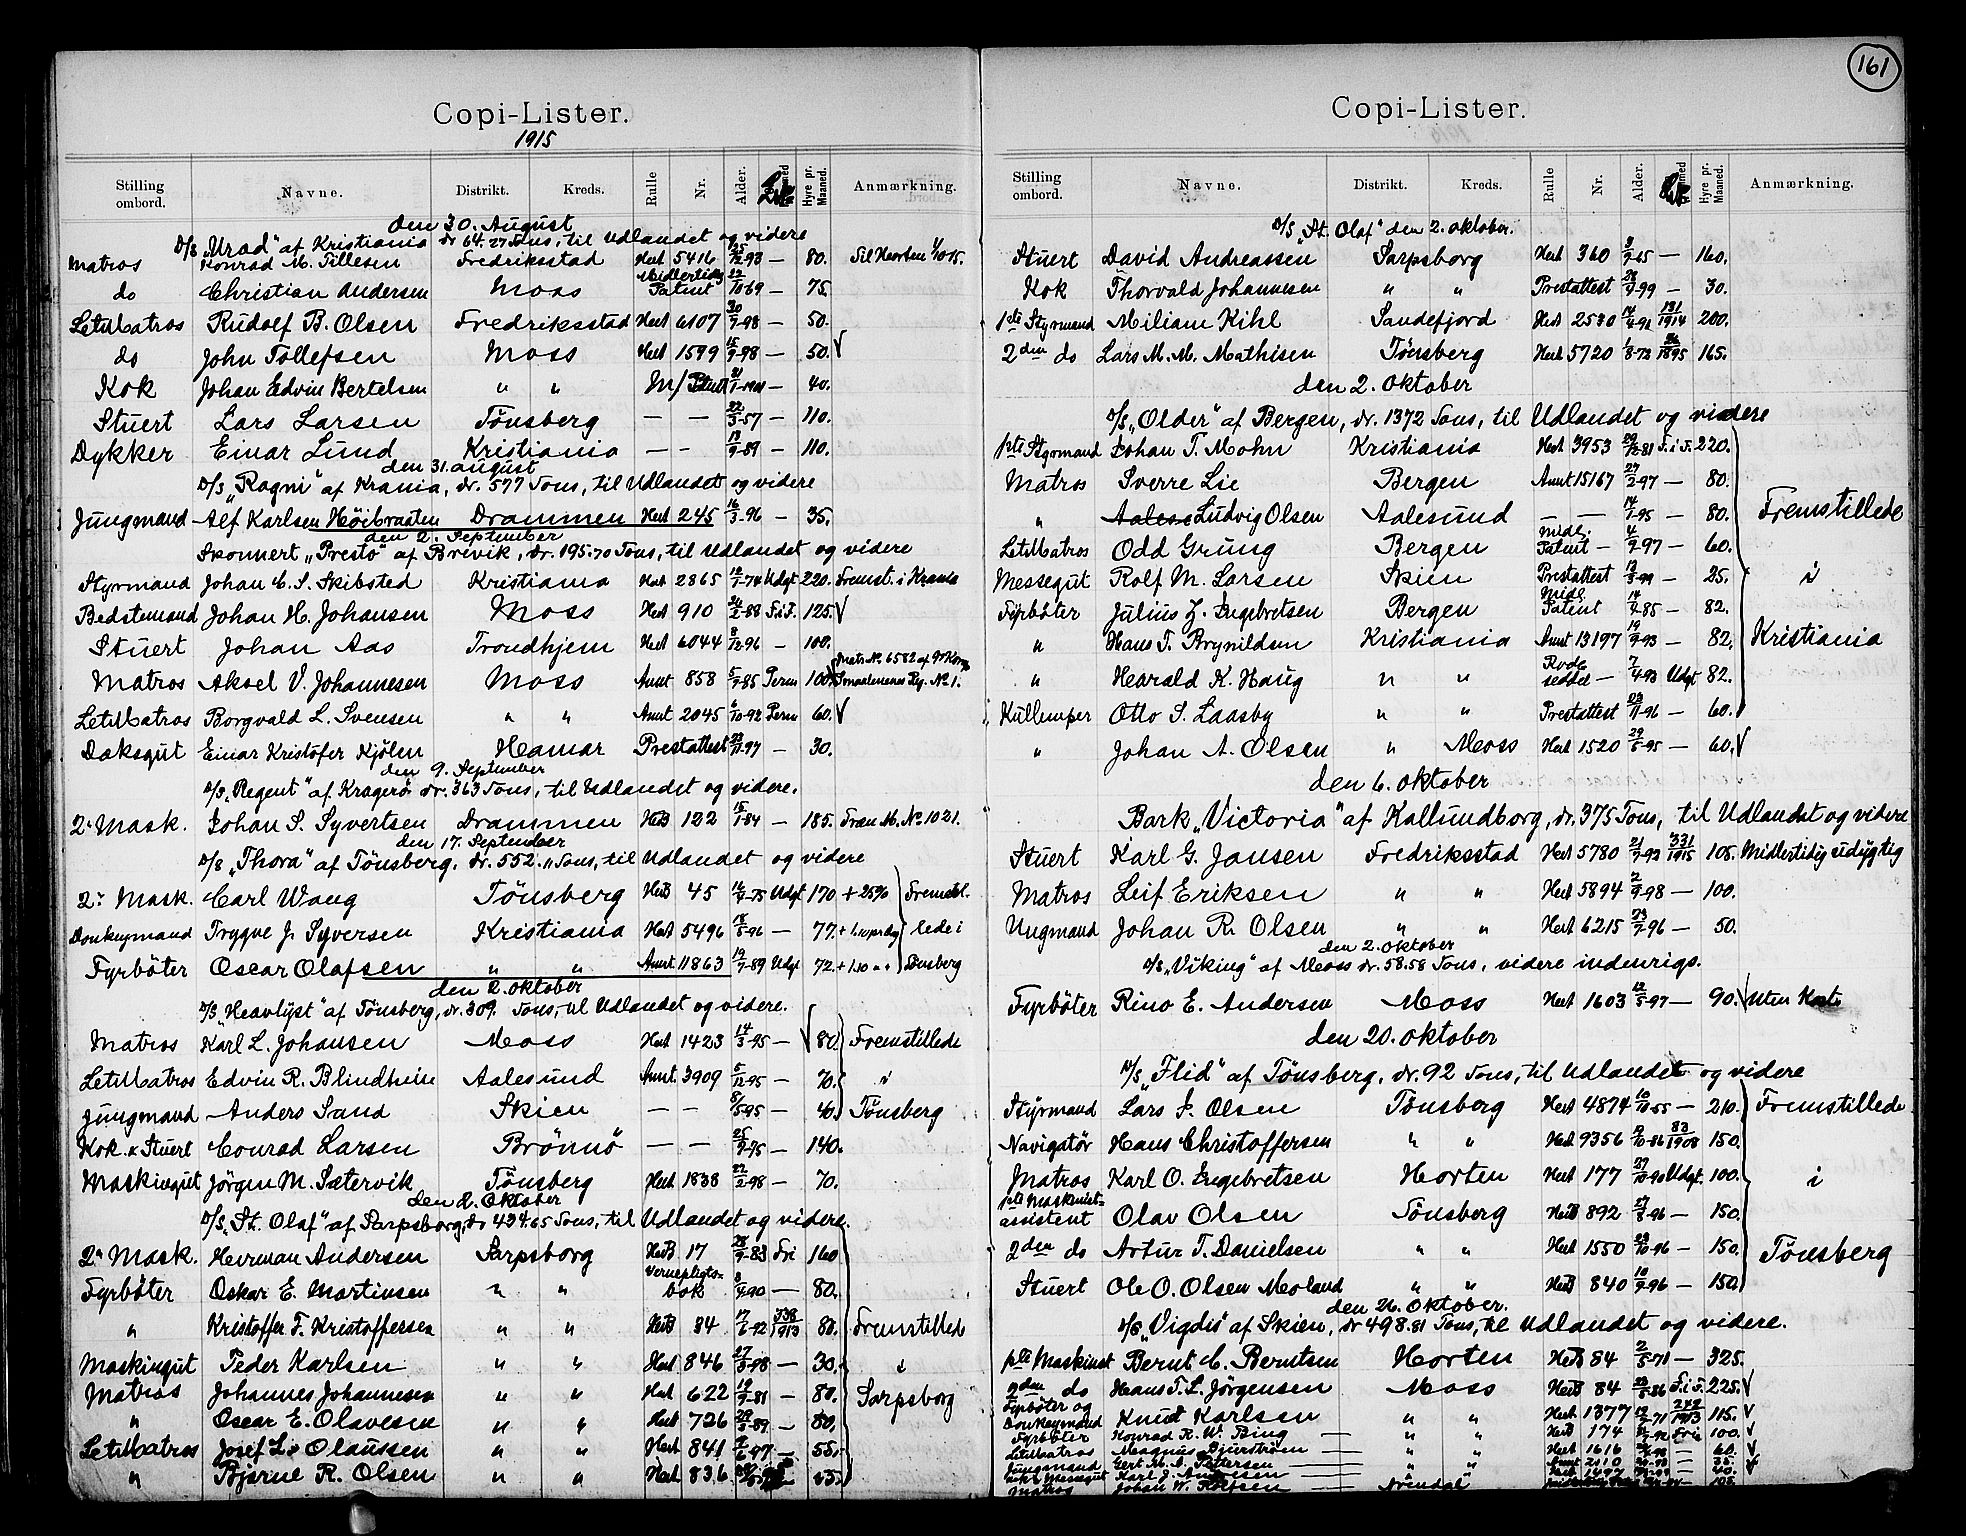 161
Copi-Lister.
1915
Stilling ombord. Navne. Distrikt. Kreds. Rulle Nr. Alder. Hyre pr. Maaned. Anmærkning.
den 30. August
D/S „Urad" af Kristiania dr 64.27 Tons, til Udlandet og videre
Matros Konrad M. Tillesen Fredriksstad Hert 5416 25/12-93 — 80. Til Horten 1/10 15.
do Christian Andersen Moss Midlertidig Patent 22/10-69 — 75.
LetMatros Rudolf B. Olsen Fredriksstad Hert 6107 30/9-98 — 50.
do John Tollefsen Moss Hert 1599 15/9-98 — 50. √
Kok Johan Edvin Bertelsen " " M/Patent — 40.
Stuert Lars Larsen Tönsberg — — 22/3-57 — 110.
Dykker Einar Lund Kristiania — — 13/9-89 — 110.
den 31. august
D/S „Ragni" af Krania, dr. 577 Tons, til Udlandet og videre
Jungmand Alf Karlsen Höibraaten Drammen Hert 245 16/3-96 — 35.
den 2. September
Skonnert „Presto" af Brevik, dr. 195.70 Tons, til Udlandet og videre
Styrmand Johan C. S. Skibsted Kristiania Hert 2865 12/1-74 Udgt 220. Fremst. i Krania
Bedstemand Johan H. Johansen Moss Hert 910 /2-88 F.i.F. 125. √
Stuert Johan Aas Trondhjem Hert 6044 8/12-96 — 100.
Matros Aksel V. Johannesen Moss Annt 858 5/9-85 Perm 100. Matr. No. 6582 af 9' Komp Smaalenenes Reg. No 1.
LetMatros Borgvald L. Svensen " " Annt 2045 6/10-92 Perm 60. √
Daksgut Einar Kristofer Kjölen Hamar Prestattest 23/11-97 — 30.
den 9. September
D/S „Regent" af Kragerö dr. 363 Tons, til Udlandet og videre.
2. Mask. Johan S. Syvertsen Drammen HerB 122 15/1-84 — 185. Fræn M. No 1021.
den 17. September
D/S „Thora" af Tönsberg, dr. 552. " Tons, til Udlandet og videre
2. Mask. Carl Wang Tönsberg HerB 45 16/4-75 Udgt 170 + 25% Fremstil-
Donkeymand Trygve J. Syversen Kristiania Hert 5496 18/5-96 — 77. + 1.10 pr. dag lede i
Fyrböter Oscar Olafsen " " Annt 11863 19/7-89 Udgt 72. + 1.10 " " Tönsberg
den 2. oktober
D/S „Heavlyst" af Tönsberg, dr. 309. Tons, til Udlandet og videre.
Matros Karl L. Johansen Moss Hert 1423 14/3-95 — √ 80. Fremstillede
LetMatros Edvin R. Blindheim Aalesund Annt 3909 5/12-95 — 70. i
Jungmand Anders Sand Skien — — 8/5-95 — 40. Tönsberg
Kok & Stuert Conrad Larsen Brönnö — — 25/9-75 — 140.
Maskingut Jörgen M. Sætervik Tönsberg Hert 1838 22/2-98 — 70.
den 2. Oktober
D/S „St. Olaf" af Sarpsborg, dr 434.65 Tons, til Udlandet og videre.
2. Mask. Herman Andersen Sarpsborg HerB 17 28/9-83 Fri 160
Fyrböter Oskar E. Martinsen " " Vernepligtsbok 8/4-90 — 80.
" Kristoffer F. Kristoffersen " " HerB 34 17/6-92 338/1913 80. Fremstillede
Maskingut Peder Karlsen " " Hert 846 27/3-98 — 30. i
Matros Johannes Johannesen " " Hert 622 19/9-81 — 80. Sarpsborg
" Oscar E. Olavesen " " Hert 726 29/3-89 — 80.
LetMatros Josef L. Olaussen " " Hert 841 /6-97 — 55.
" Bjarne R. Olsen " " Hert 836
Copi-Lister.
Stilling ombord. Navne. Distrikt. Kreds. Rulle Nr. Alder. Hyre pr. Maaned. Anmærkning.
D/S „St. Olaf" den 2. oktober.
Stuert David Andreassen Sarpsborg Hert 360 — 160.
Kok Thorvald Johannesen " " Prestattest 28/9-99 — 30.
1ste Styrmand Miliam Kihl Sandefjord Hert 2530 14/4-91 131/1914 200.
2den do Lars M. M. Mathisen Tönsberg Hert 5720 1/8-72 /1895 165.
den 2. Oktober
D/S „Older" af Bergen, dr. 1372 Tons, til Udlandet og videre
1ste Styrmand Johan T. Mohn Kristiania Hert 3953 29/12-81 F.i.F. 220.
Matros Sverre Lie Bergen Annt 15167 27/2-97 — 80.
" Ludvig Olsen Aalesund — — 14/1-95 — 80. Fremstillede
LetMatros Odd Grung Bergen Midl. Patent — 4/9-97 — 60.
Messegut Rolf M. Larsen Skien Prestattest 13/5-99 — 25. i
Fyrböter Julius Z. Engebretsen Bergen Midl. Patent 14/4-85 — 82.
" Hans T. Brynildsen Kristiania Annt 13197 19/9-93 — 82. Kristiania
" Hearald K. Haug " " Rode seddel — 7/4-93 Udgt 82.
Kullemper Otto S. Laasby " " Prestattest 23/11-96 — 60.
" Johan A. Olsen " Moss Hert 1520 29/5-95 — 60. √
den 6. oktober
Bark „Victoria" af Kallundborg, dr. 375 Tons, til Udlandet og videre
Stuert Karl G. Jansen Fredriksstad Hert 5780 21/7-92 331/1915 105. Midlertidig udygtig
Matros Leif Eriksen " " Hert 5894 2/9-98 — 100.
Ungmand Johan R. Olsen " " Hert 6215 23/7-96 — 50.
den 2. Oktober
D/S „Viking" af Moss dr. 58.58 Tons, videre indenrigs.
Fyrböter Rino E. Andersen Moss Hert 1603 12/5-97 — 90. √ Uten Kort
den 20. oktober
M/S „Flid" af Tönsberg, dr. 92 Tons, til Udlandet og videre
Styrmand Lars J. Olsen Tönsberg Hert 4874 10/10-55 — 210. Fremstillede
Navigatör Hans Christoffersen " " Hert 9356 9/10-86 83/1908 150.
Matros Karl O. Engebretsen Horten Hert 177 27/10-90 Udgt. 100. i
1ste Maskinist-assistent Olav Olsen Tönsberg HerB 892 27/8-96 — 150.
2den do Artur T. Danielsen " " Hert 1550 23/10-96 — 150. Tönsberg
Stuert Ole O. Olsen Meoland " " HerB 840 10/9-96 — 150.
den 26. Oktober.
D/S „Vigdis" af Skien, dr 498.81 Tons, til Udlandet og videre.
1ste Maskinist Bernt C. Berntsen Horten HerB 84 2/5-71 — 325.
2den do Hans T. L. Jörgensen Moss HerB 84 23/5-86 F.i.F. 225. √
Fyrböter og Donkeymand Knut Karlsen " " Hert 1377 12/2-71 242/1913 115. √
Fyrböter Konrad R. W. Bing — " " HerB 174 Fri 100. √
LetMatros Magnus Bjurström — " " Hert 1616 — 60. √
Jungmand Gert M. A. Pettersen — " " Annt 2110 — 35. √
Messegut Karl J. Andersen — " " Hert 1497 — 40.
Matros Johan W. Rolfsen — Arendal